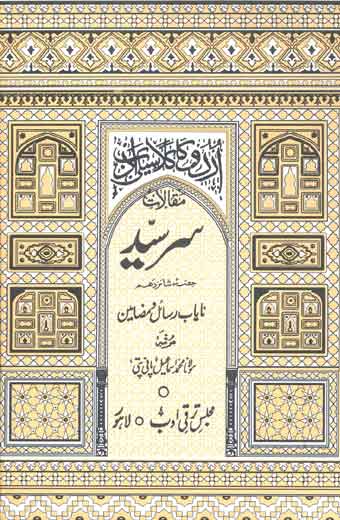 اردو کا کلاسیکی ادب
مقالات
سرسیّد
حصّہ شانزدہم
نایاب رسائل و مضامین
مرتّبہ
مولانا محمد اسماعیل پانی پتی
مجلس ترقی ادب ○ لاہور